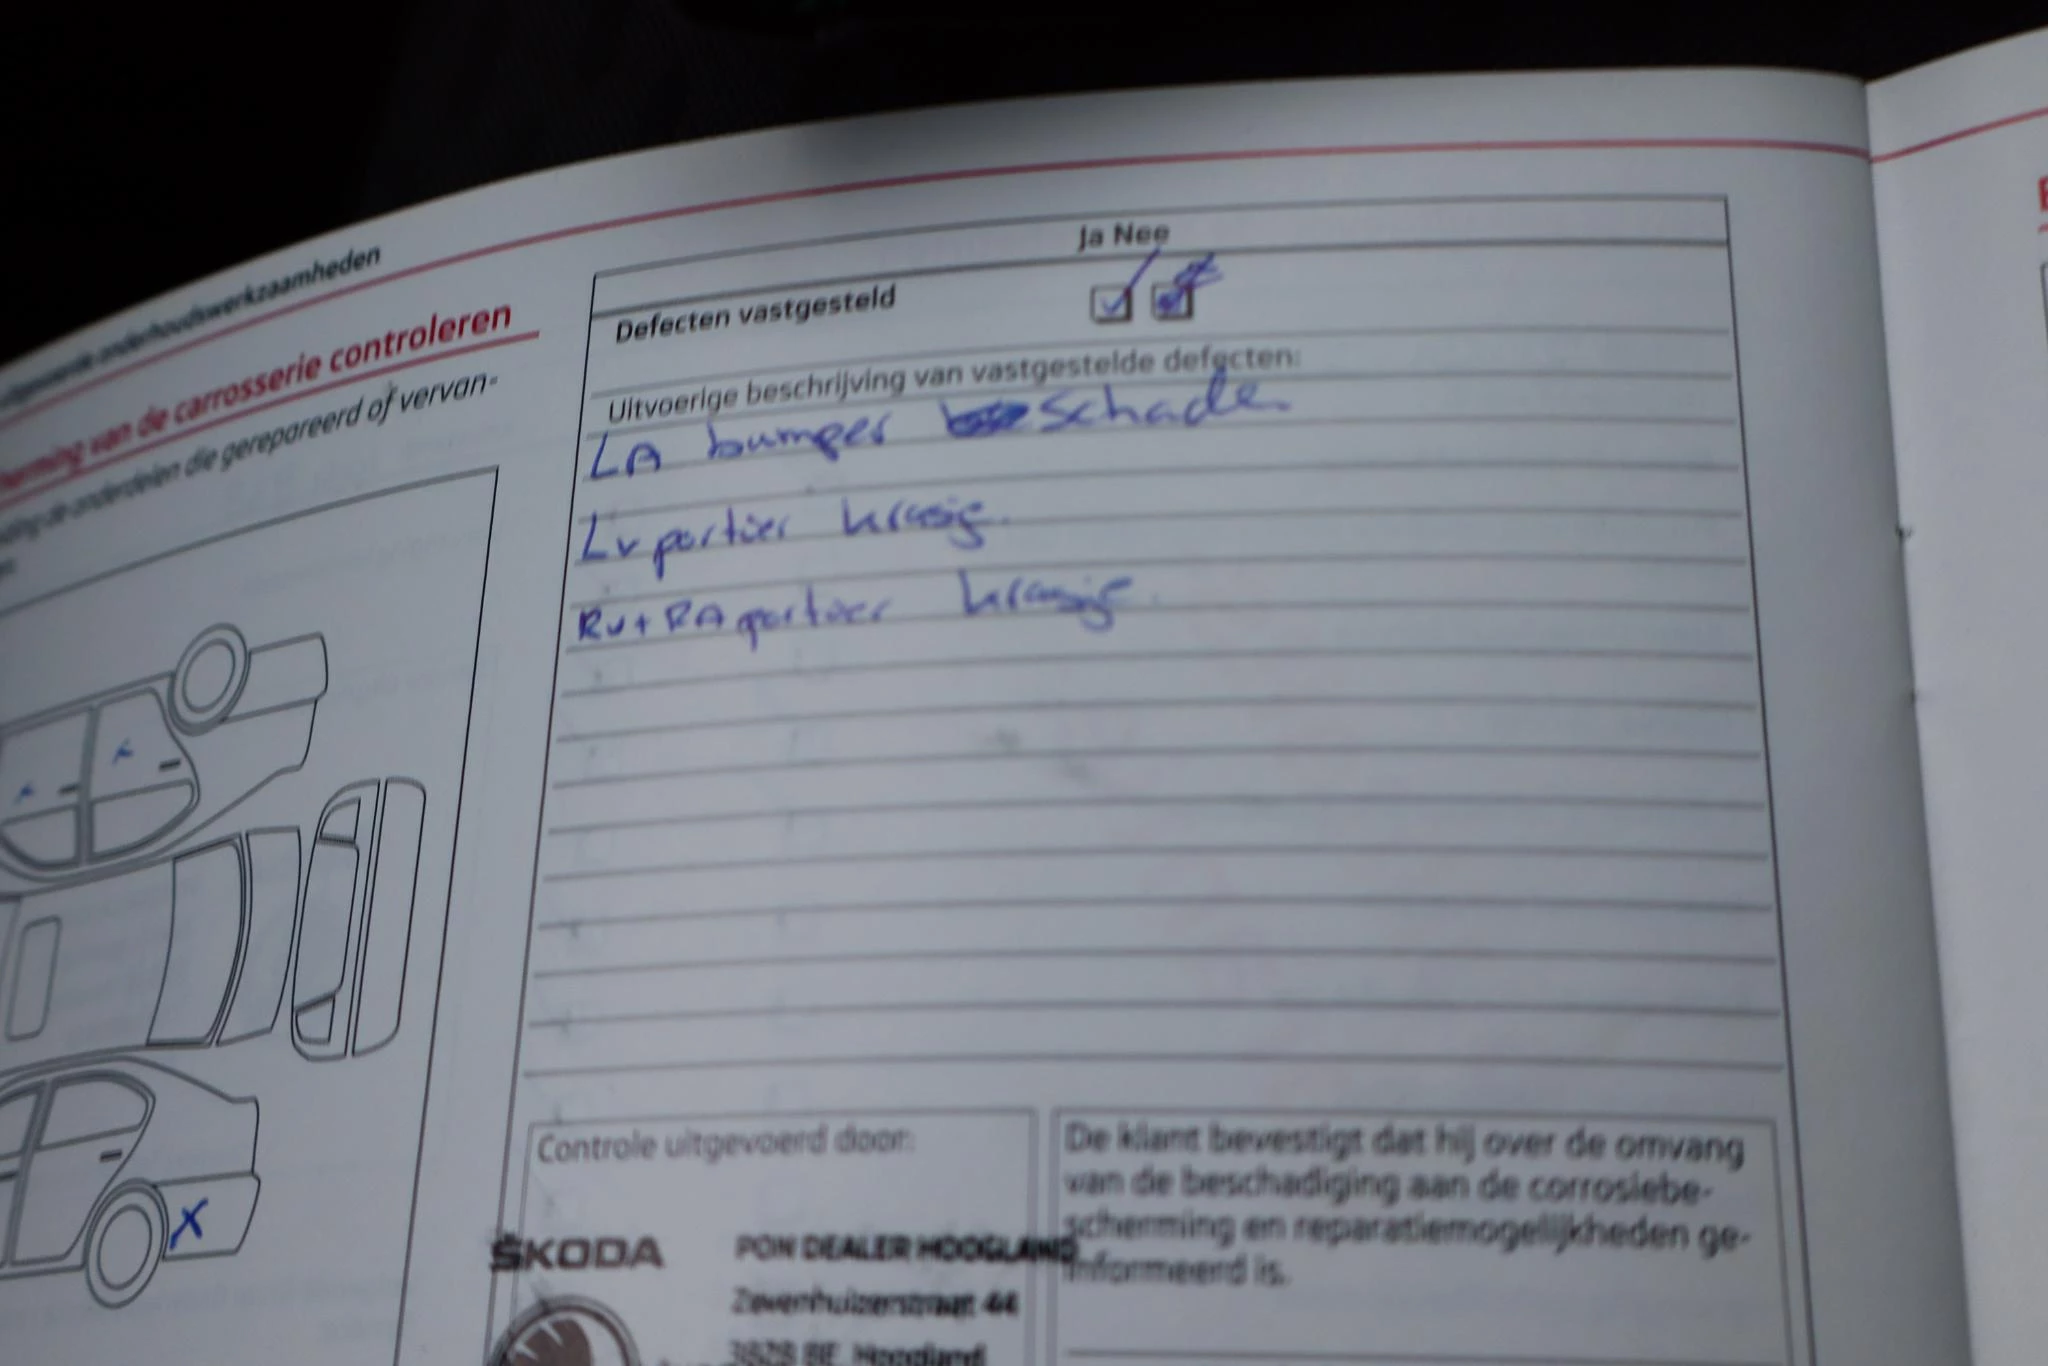 onderhoudswerkzaamheden
van de carrosserie controleren
de onderdelen die gerepareerd of vervan-
Ja Nee
Defecten vastgesteld
Uitvoerige beschrijving van vastgestelde defecten:
LA bumper schade
LV portier krasje
RV + RA portier krasje
Controle uitgevoerd door:
ŠKODA
PON DEALER HOOGLAND
Zevenhuizerstraat 44
3828 BE Hoogland
De klant bevestigt dat hij over de omvang
van de beschadiging aan de corrosiebe-
scherming en reparatiemogelijkheden ge-
informeerd is.